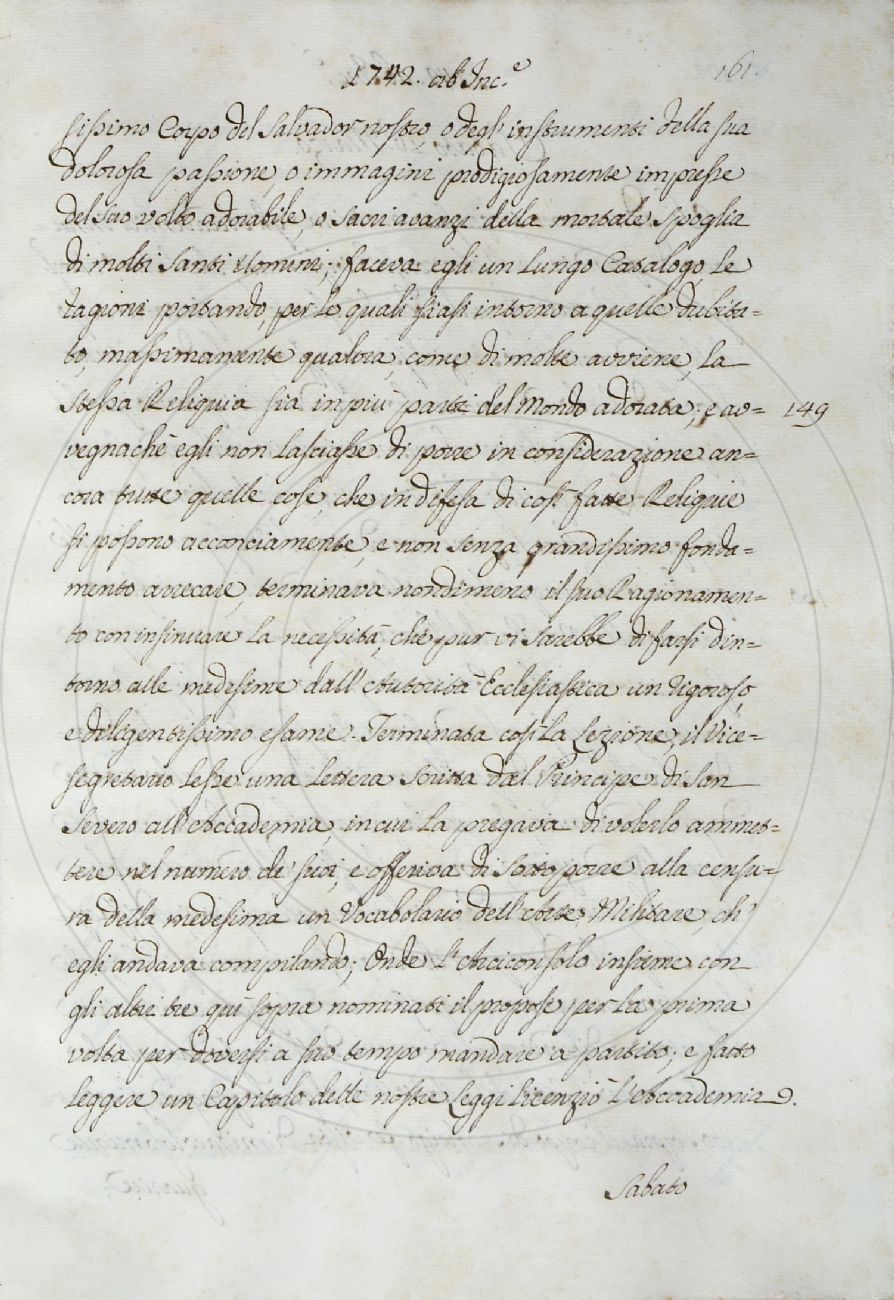 1742. ab Inc.e
161.
sissimo Corpo del Salvador nostro, o degl' instrumenti della sua
dolorosa passione, o immagini prodigiosamente impresse
del suo volto adorabile, o sacri avanzi della mortale spoglia
di molti Santi Uomini; faceva egli un lungo Catalogo, le
ragioni portando, per le quali siasi intorno a quelle dubita=
to, massimamente qualora, come di molte avviene, la
stessa Reliquia sia in più parti del Mondo adorata; e av=
149
vegnachè egli non lasciasse di porre in considerazione an=
cora tutte quelle cose, che in difesa di così fatte Reliquie
si possono acconciamente, e non senza grandissimo fonda=
mento arrecare, terminava nondimeno il suo Ragionamen=
to con insinuare la necessità, che pur vi sarebbe di farsi din=
torno alle medesime dall' Autorità Ecclesiastica un rigoroso,
e diligentissimo esame. Terminata così la Lezione, il Vice=
segretario lesse una Lettera scritta dal Principe di San
Severo all' Accademia, in cui la pregava di volerlo ammet=
tere nel numero de' suoi, e offeriva di sottoporre alla censu=
ra della medesima un Vocabolario dell' Arte Militare, ch'
egli andava compilando; Onde l' Arciconsolo insieme con
gli altri tre quì sopra nominati il propose per la prima
volta per doversi a suo tempo mandare a partito; e fatto
leggere un Capitolo delle nostre Leggi licenziò l' Accademia.
Sabato